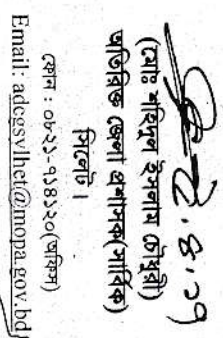 ২.৪.১৭
(মোঃ শহিদুল ইসলাম চৌধুরী)
অতিরিক্ত জেলা প্রশাসক(সার্বিক)
সিলেট।
ফোন : ০৮২১-৭১৪১২০(অফিস)
Email: adcgsylhet@mopa.gov.bd